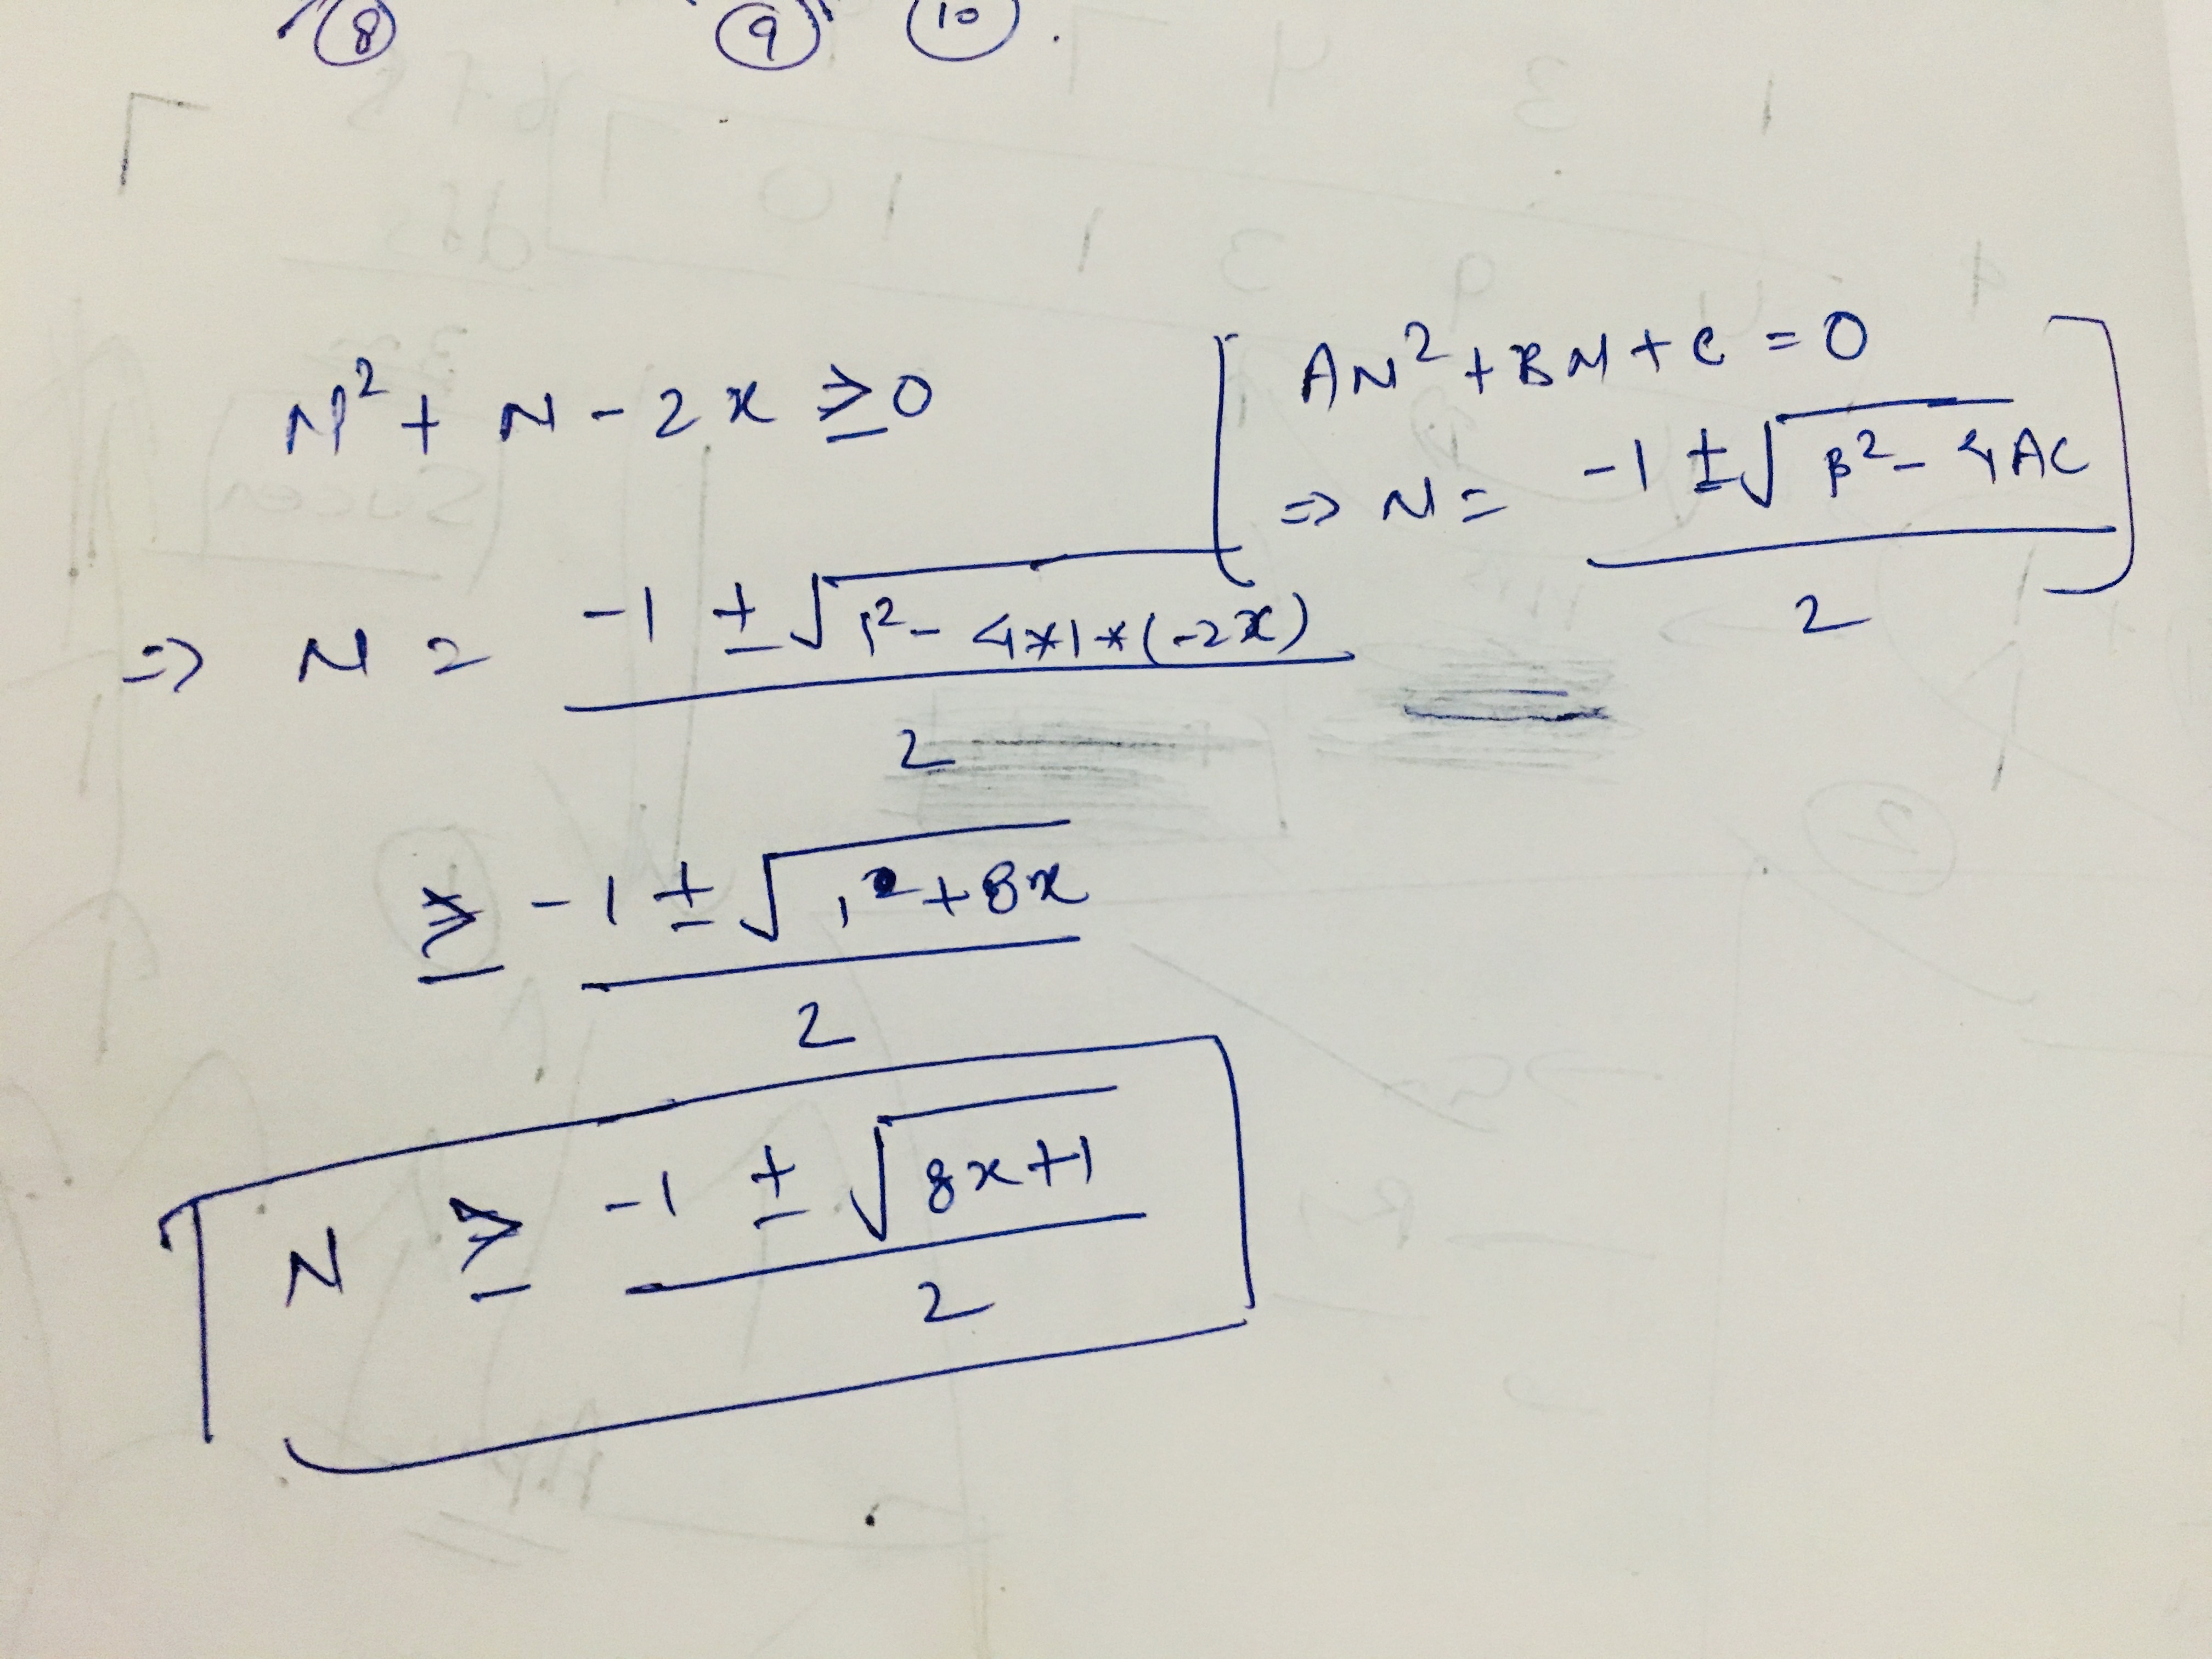 8 9 10 .
N² + N - 2x ≥ 0
[ AN² + BN + C = 0
⇒ N = (-1 ± √(B² - 4AC)) / 2 ]
⇒ N = (-1 ± √(1² - 4*1*(-2x))) / 2
≥ (-1 ± √(1² + 8x)) / 2
N ≥ (-1 ± √(8x+1)) / 2